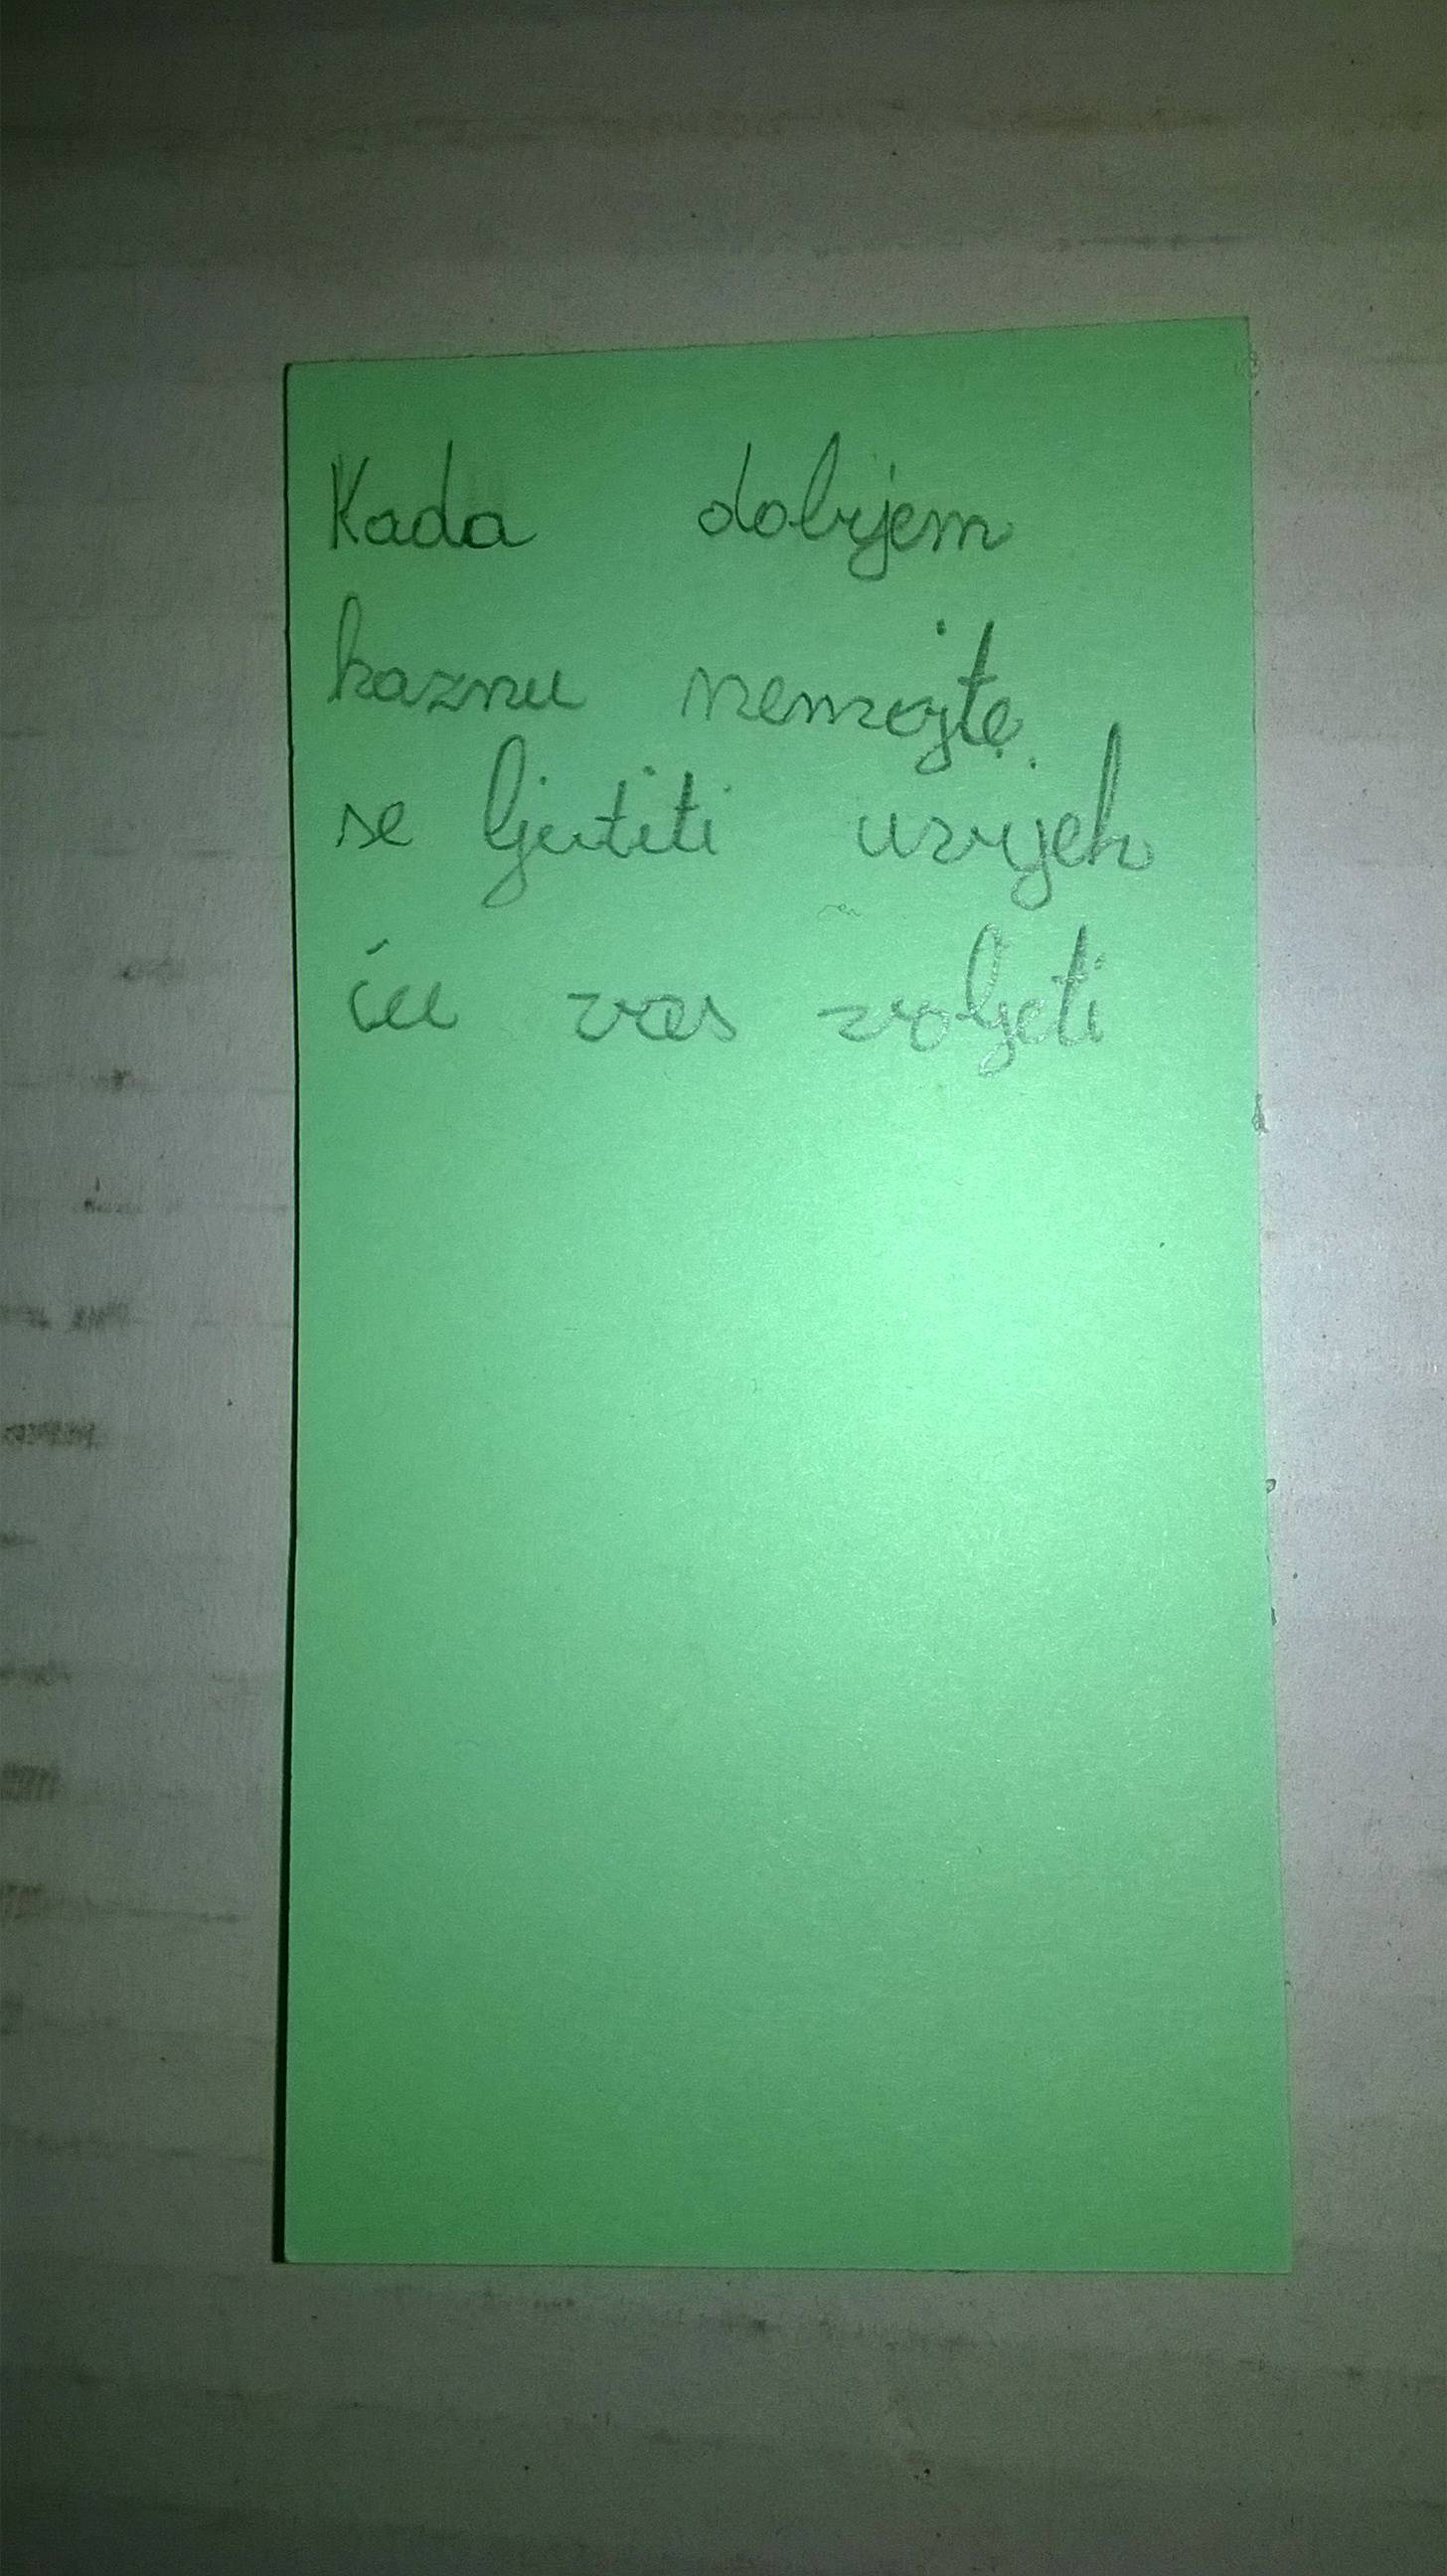 Kada dobijem
kaznu nemojte
se ljutiti uvijek
ću vas voljeti